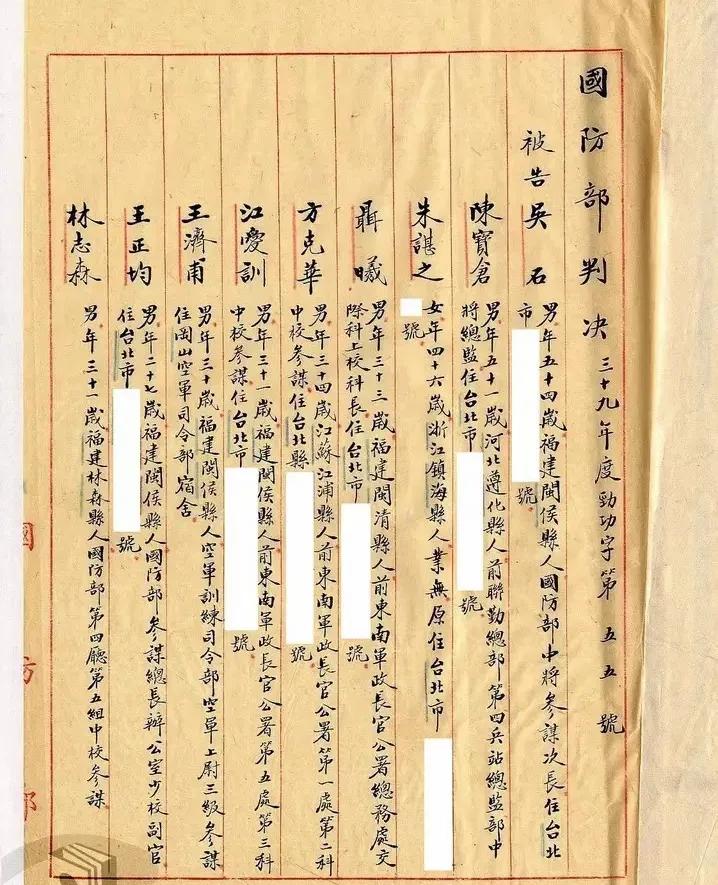 國防部判決 三十九年度勁功字第五五號
被告吳石 男年五十四歲福建閩侯縣人國防部中將參謀次長住台北
市 號
陳寶倉 男年五十一歲河北遵化縣人前聯勤總部第四兵站總監部中
將總監住台北市 號
朱諶之 女年四十六歲浙江鎮海縣人業無原住台北市
號
聶曦 男年三十三歲福建閩清縣人前東南軍政長官公署總務處交
際科上校科長住台北市 號
方克華 男年三十四歲江蘇江浦縣人前東南軍政長官公署第一處第二科
中校參謀住台北縣 號
江愛訓 男年三十一歲福建閩侯縣人前東南軍政長官公署第五處第三科
中校參謀住台北市 號
王濟甫 男年三十歲福建閩侯縣人空軍訓練司令部空軍上尉三級參謀
住岡山空軍司令部宿舍
王正均 男年二十七歲福建閩侯縣人國防部參謀總長辦公室少校副官
住台北市 號
林志森 男年三十一歲福建林森縣人國防部第四廳第五組中校參謀
國防部